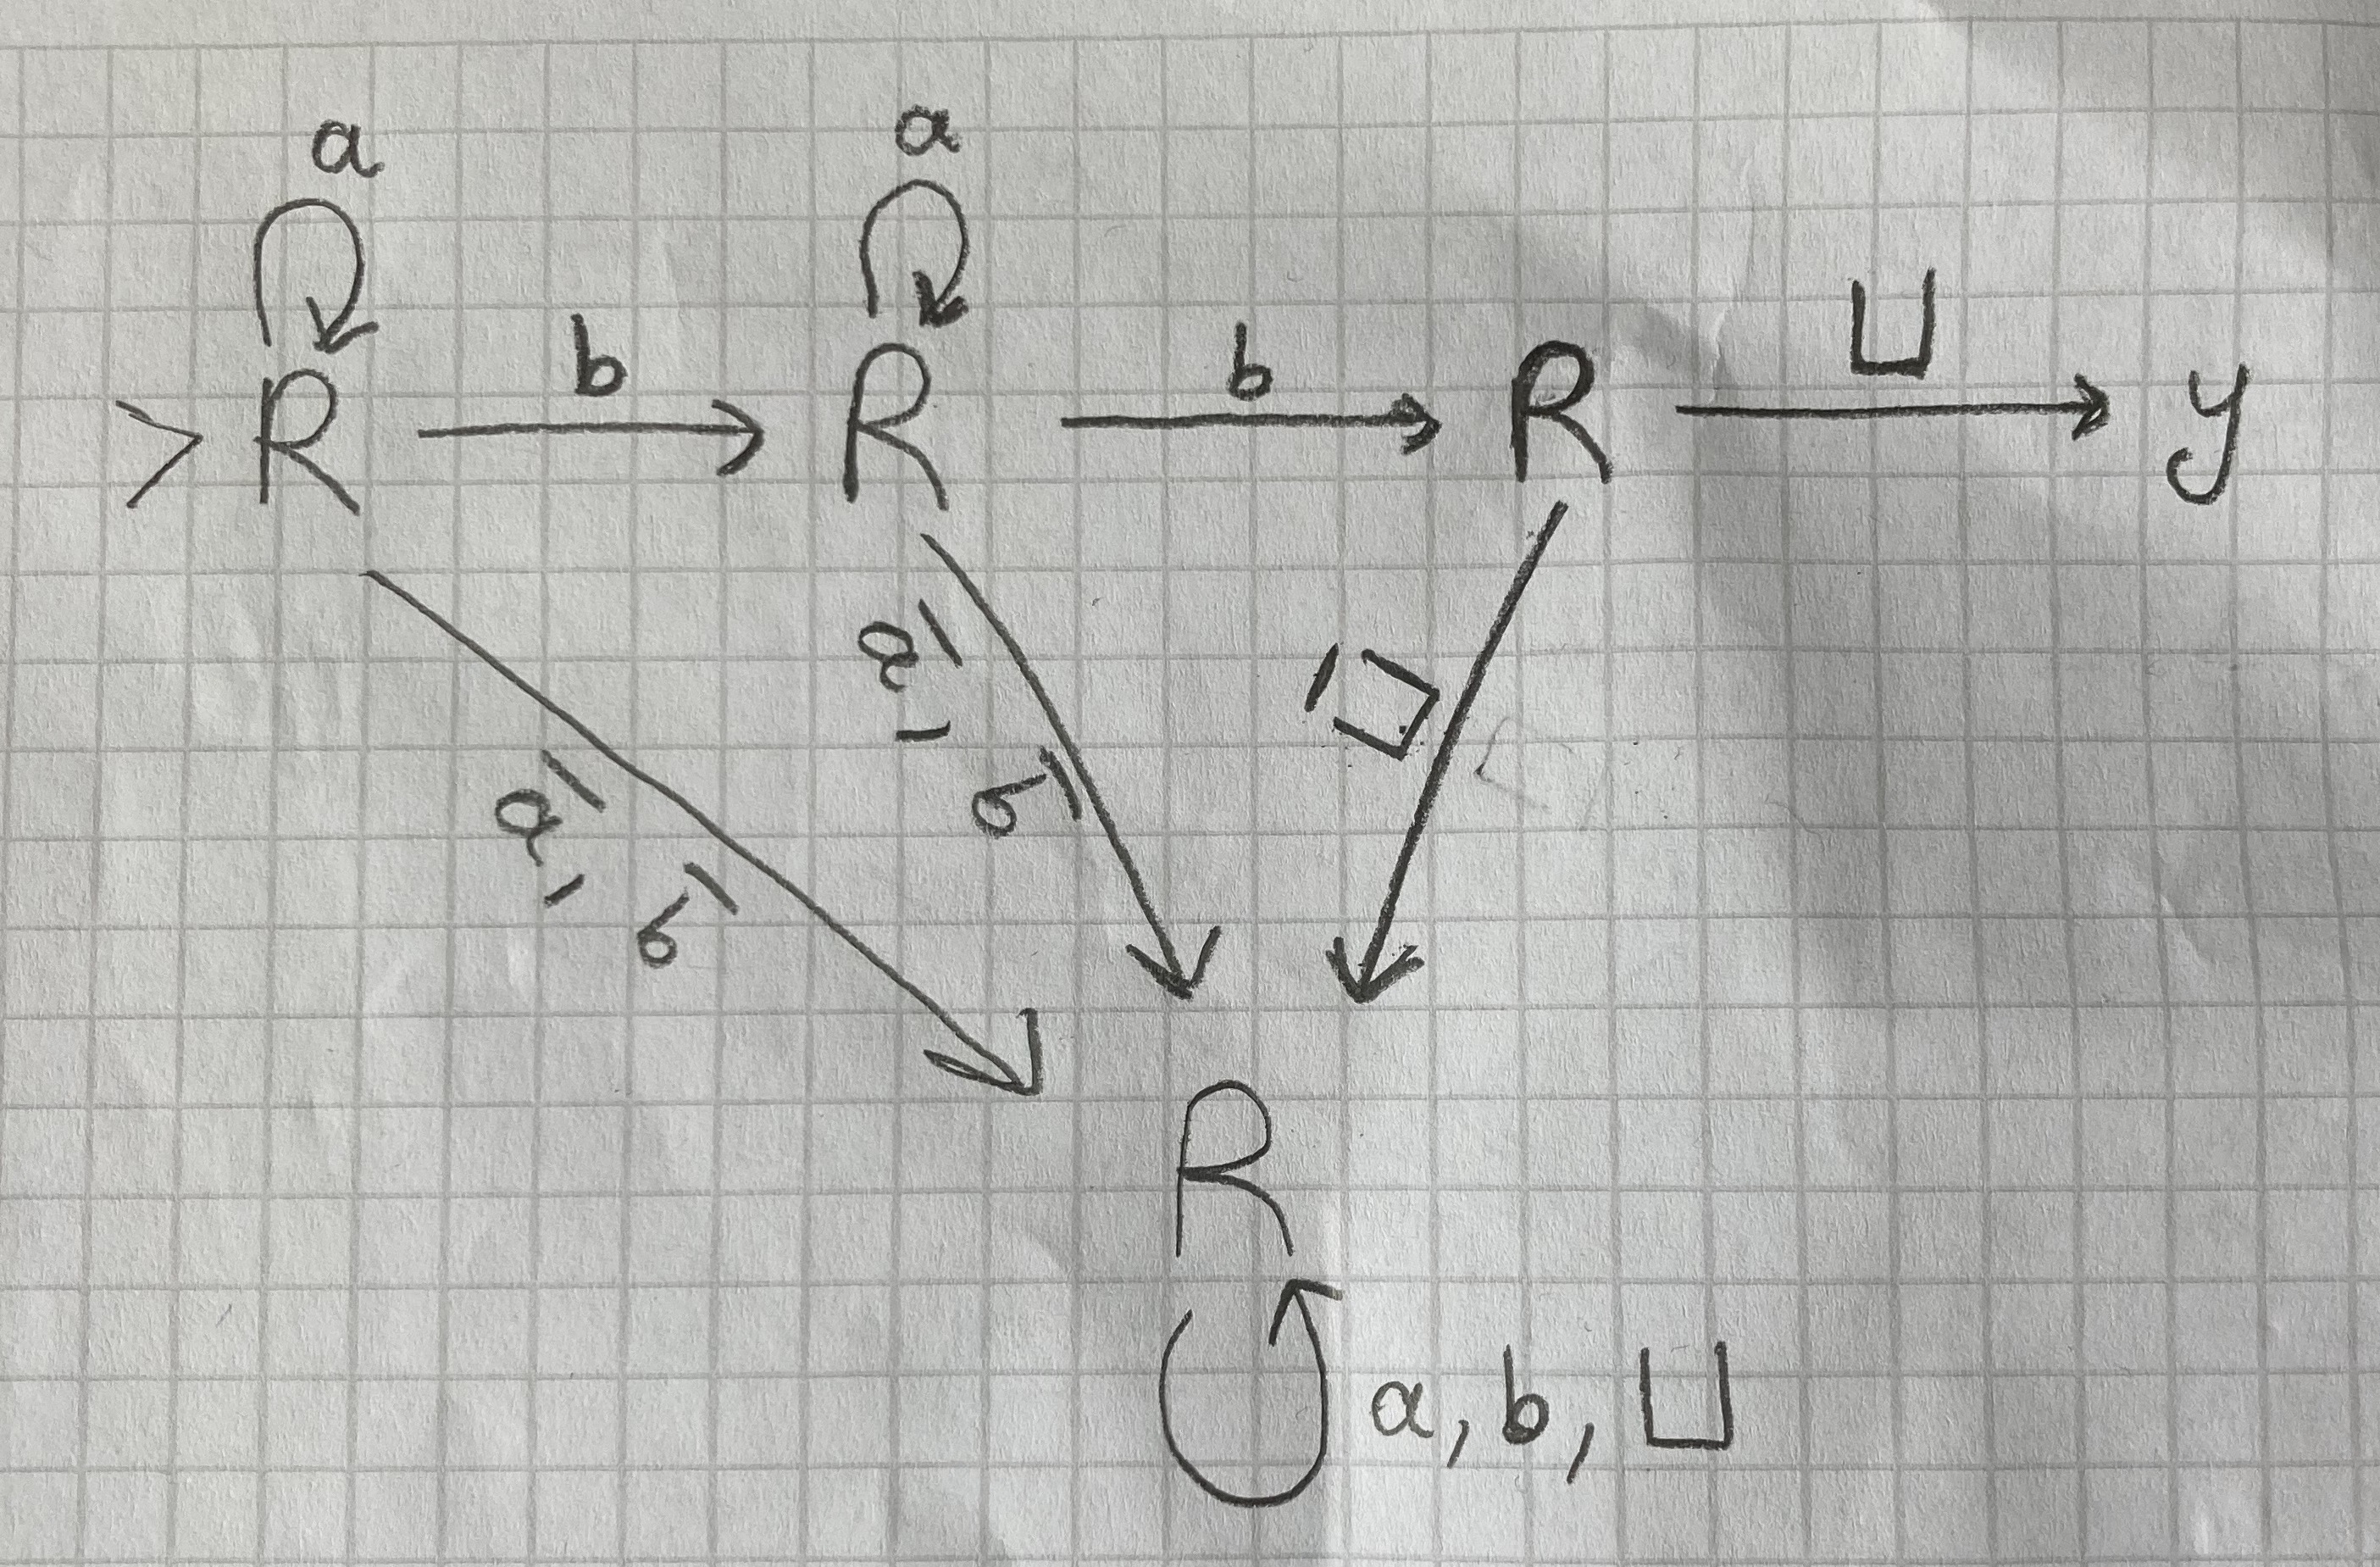 a
a
b
b
⊔
>R
R
R
y
a̅, b̅
a̅, b̅
⊔̅
R
a, b, ⊔